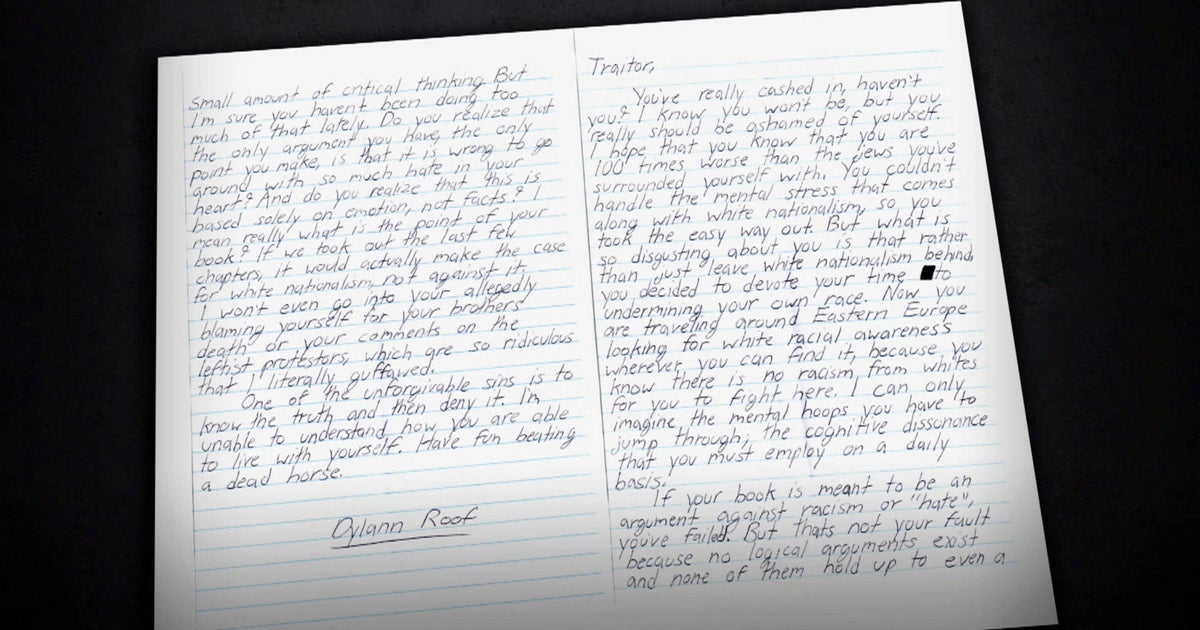 Traitor,
You've really cashed in, haven't
you? I know you won't be, but you
really should be ashamed of yourself.
I hope that you know that you are
100 times worse than the jews you've
surrounded yourself with. You couldn't
handle the mental stress that comes
along with white nationalism, so you
took the easy way out. But what is
so disgusting about you is that rather
than just leave white nationalism behind,
you decided to devote your time to
undermining your own race. Now you
are traveling around Eastern Europe
looking for white racial awareness
wherever you can find it, because you
know there is no racism from whites
for you to fight here. I can only
imagine the mental hoops you have to
jump through, the cognitive dissonance
that you must employ on a daily
basis.
If your book is meant to be an
argument against racism or "hate",
you've failed. But thats not your fault
because no logical arguments exist
and none of them hold up to even a
Small amount of critical thinking. But
I'm sure you haven't been doing too
much of that lately. Do you realize that
the only argument you have, the only
point you make, is that it is wrong to go
around with so much hate in your
heart? And do you realize that this is
based solely on emotion, not facts? I
mean really what is the point of your
book? If we took out the last few
chapters, it would actually make the case
for white nationalism, not against it.
I won't even go into your allegedly
blaming yourself for your brothers
death or your comments on the
leftist protestors, which are so ridiculous
that I literally guffawed.
One of the unforgivable sins is to
know the truth and then deny it. I'm
unable to understand how you are able
to live with yourself. Have fun beating
a dead horse.
Dylann Roof